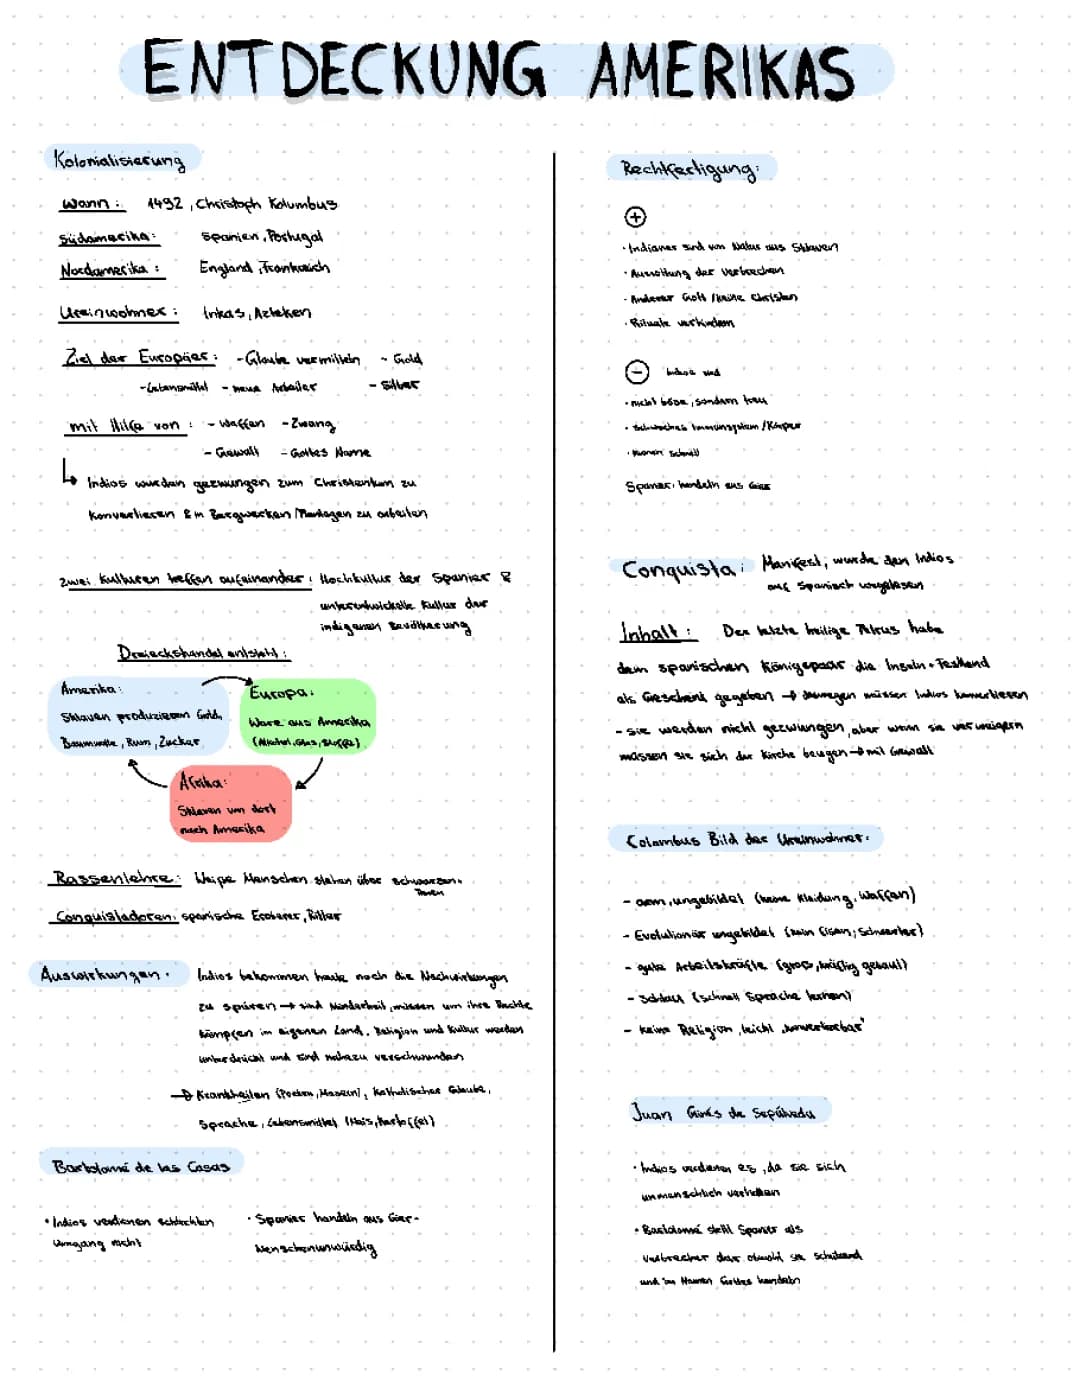 ENTDECKUNG AMERIKAS
Kolonialisierung
Wann: 1492, Christoph Kolumbus
Südamerika: Spanien, Portugal
Nordamerika: England, Frankreich
Ureinwohner: Inkas, Azteken
Ziel der Europäer: - Glaube vermitteln - Gold
- Lebensmittel - neue Arbeiter - Silber
mit Hilfe von: - Waffen - Zwang
- Gewalt - Gottes Name
↳ Indios wurden gezwungen zum Christentum zu
konvertieren & in Bergwerken/Plantagen zu arbeiten
Zwei Kulturen treffen aufeinander: Hochkultur der Spanier &
unterentwickelte Kultur der
indigenen Bevölkerung
Dreieckshandel entsteht:
Amerika:
Sklaven produzieren Gold,
Baumwolle, Rum, Zucker
Europa:
Ware aus Amerika
(Alkohol, Glas, Stoffe)
Afrika:
Sklaven von dort
nach Amerika
Rassenlehre: Weiße Menschen stehen über schwarzen
Conquistadoren: spanische Eroberer, Ritter
Auswirkungen: Indios bekommen heute noch die Nachwirkungen
zu spüren → sind Minderheit, müssen um ihre Rechte
kämpfen im eigenen Land, Religion und Kultur werden
unterdrückt und sind nahezu verschwunden
→ Krankheiten (Pocken, Masern), Katholischer Glaube,
Sprache, Lebensmittel (Mais, Kartoffel)
Bartolomé de las Casas
• Indios verdienen schlechten
Umgang nicht
• Spanier handeln aus Gier-
Menschenunwürdig
Rechtfertigung:
+
• Indianer sind von Natur aus Sklaven
• der Verbrechen
• Anderer Gott / keine Christen
• Rituale verhindern
- Indios sind
• nicht böse, sondern treu
• Schwaches Immunsystem/Körper
• schnell
Spanier: handeln aus Gier
Conquista: Manifest, wurde den Indios
auf Spanisch vorgelesen
Inhalt: Der letzte heilige Petrus habe
dem spanischen Königspaar die Inseln + Festland
als Geschenk gegeben → deswegen müssen Indios konvertieren
- sie werden nicht gezwungen, aber wenn sie verweigern
müssen sie sich der Kirche beugen → mit Gewalt
Colombus Bild der Ureinwohner:
- arm, ungebildet (keine Kleidung, Waffen)
- Evolutionär ungebildet (kein Eisen, Schwerter)
- gute Arbeitskräfte (groß, kräftig gebaut)
- Schlau (schnell Sprache lernen)
- Keine Religion, leicht "konvertierbar"
Juan Ginés de Sepúlveda
• Indios verdienen es, da sie sich
unmenschlich verhalten
• Bartolomé stellt Spanier als
Verbrecher dar obwohl sie schützend
und im Namen Gottes handeln